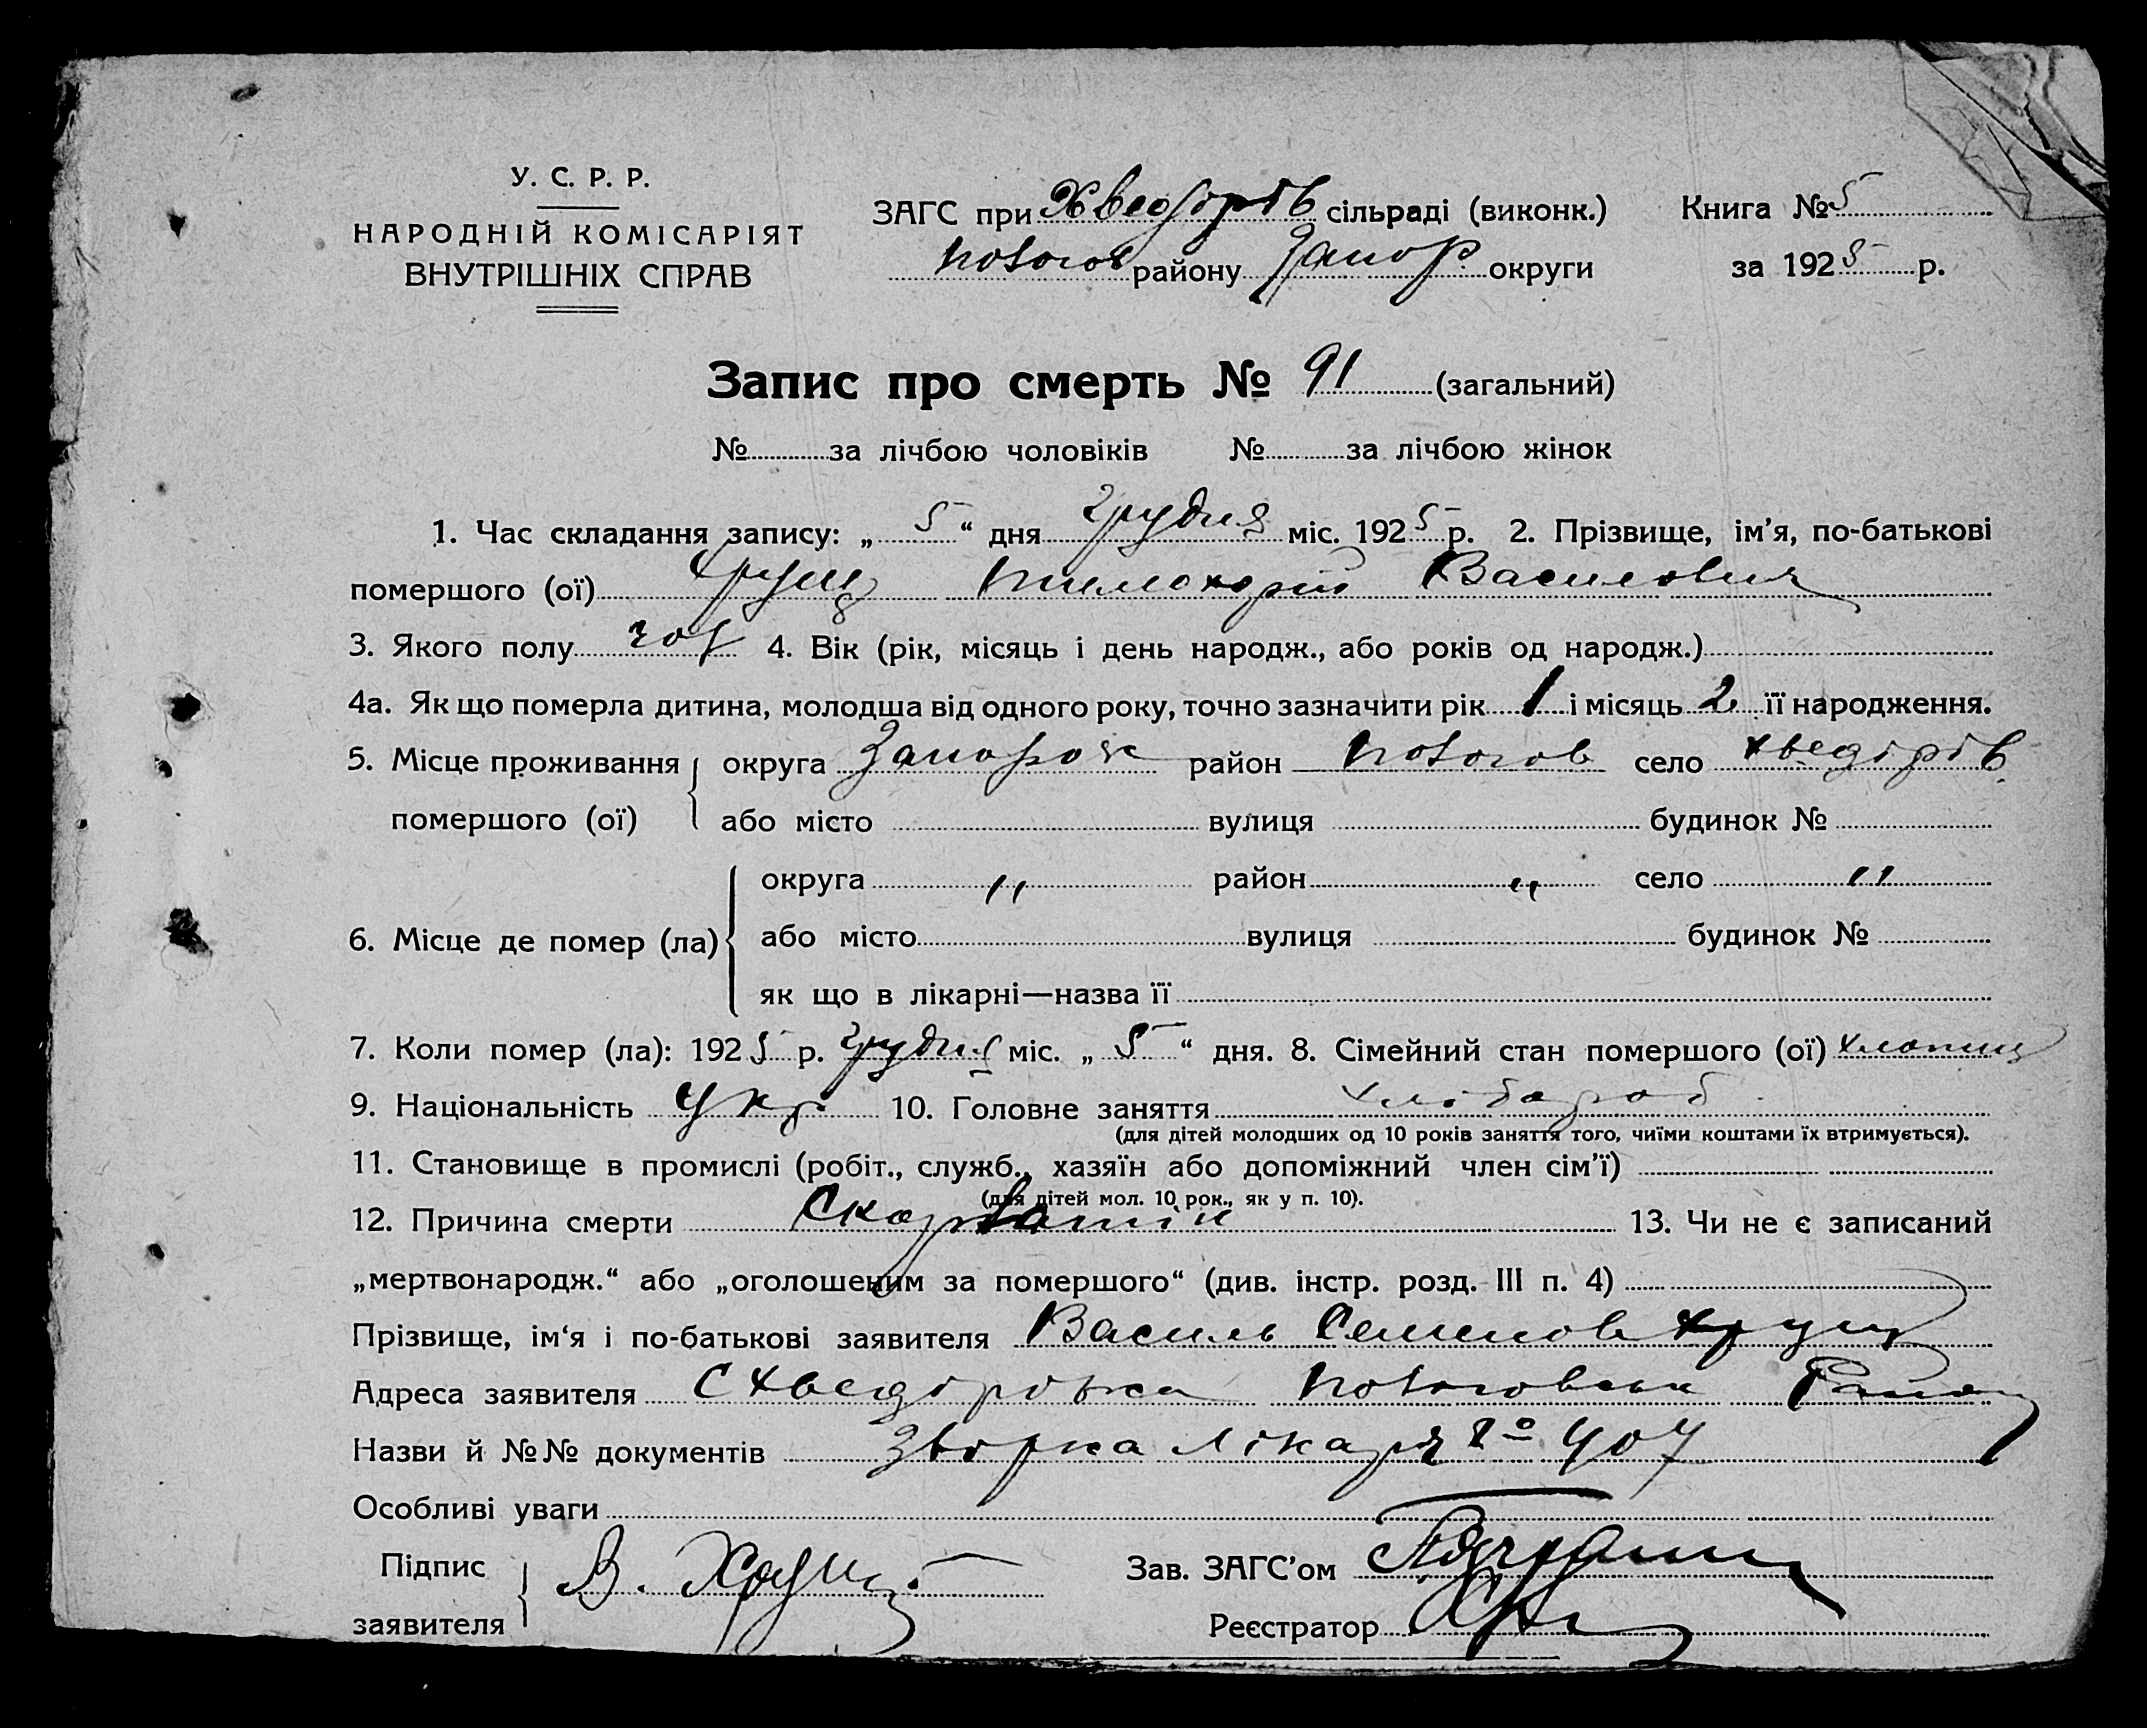 У. С. Р. Р.
НАРОДНІЙ КОМІСАРІЯТ
ВНУТРІШНІХ СПРАВ
ЗАГС при Хведорів сільраді (виконк.)
Пологов району Запор. округи
Книга № 5
за 1925 р.
Запис про смерть № 91 (загальний)
№ за лічбою чоловіків № за лічбою жінок
1. Час складання запису: „ 5 “ дня грудня міс. 1925 р. 2. Прізвище, ім’я, по-батькові
помершого (ої) Хрущ Василович
3. Якого полу чол 4. Вік (рік, місяць і день народж., або років од народж.)
4а. Як що померла дитина, молодша від одного року, точно зазначити рік 1 і місяць 2 її народження.
5. Місце проживання округа Запорож район Пологов село Хведорів
помершого (ої) або місто вулиця будинок №
округа " район " село "
6. Місце де помер (ла) або місто вулиця будинок №
як що в лікарні—назва її
7. Коли помер (ла): 1925 р. грудня міс. „ 5 “ дня. 8. Сімейний стан помершого (ої) хлопець
9. Національність Укр. 10. Головне заняття хлібороб
(для дітей молодших од 10 років заняття того, чиїми коштами їх втримується).
11. Становище в промислі (робіт., служб., хазяїн або допоміжний член сім’ї)
(для дітей мол. 10 рок., як у п. 10).
12. Причина смерти 13. Чи не є записаний
„мертвонародж.“ або „оголошеним за помершого“ (див. інстр. розд. III п. 4)
Прізвище, ім‘я і по-батькові заявителя Василь Семенов Хрущ
Адреса заявителя с Хведорівка Пологовськ Район
Назви й №№ документів лікаря 407
Особливі уваги
Підпис
заявителя В. Хрущ
Зав. ЗАГС’ом
Реєстратор